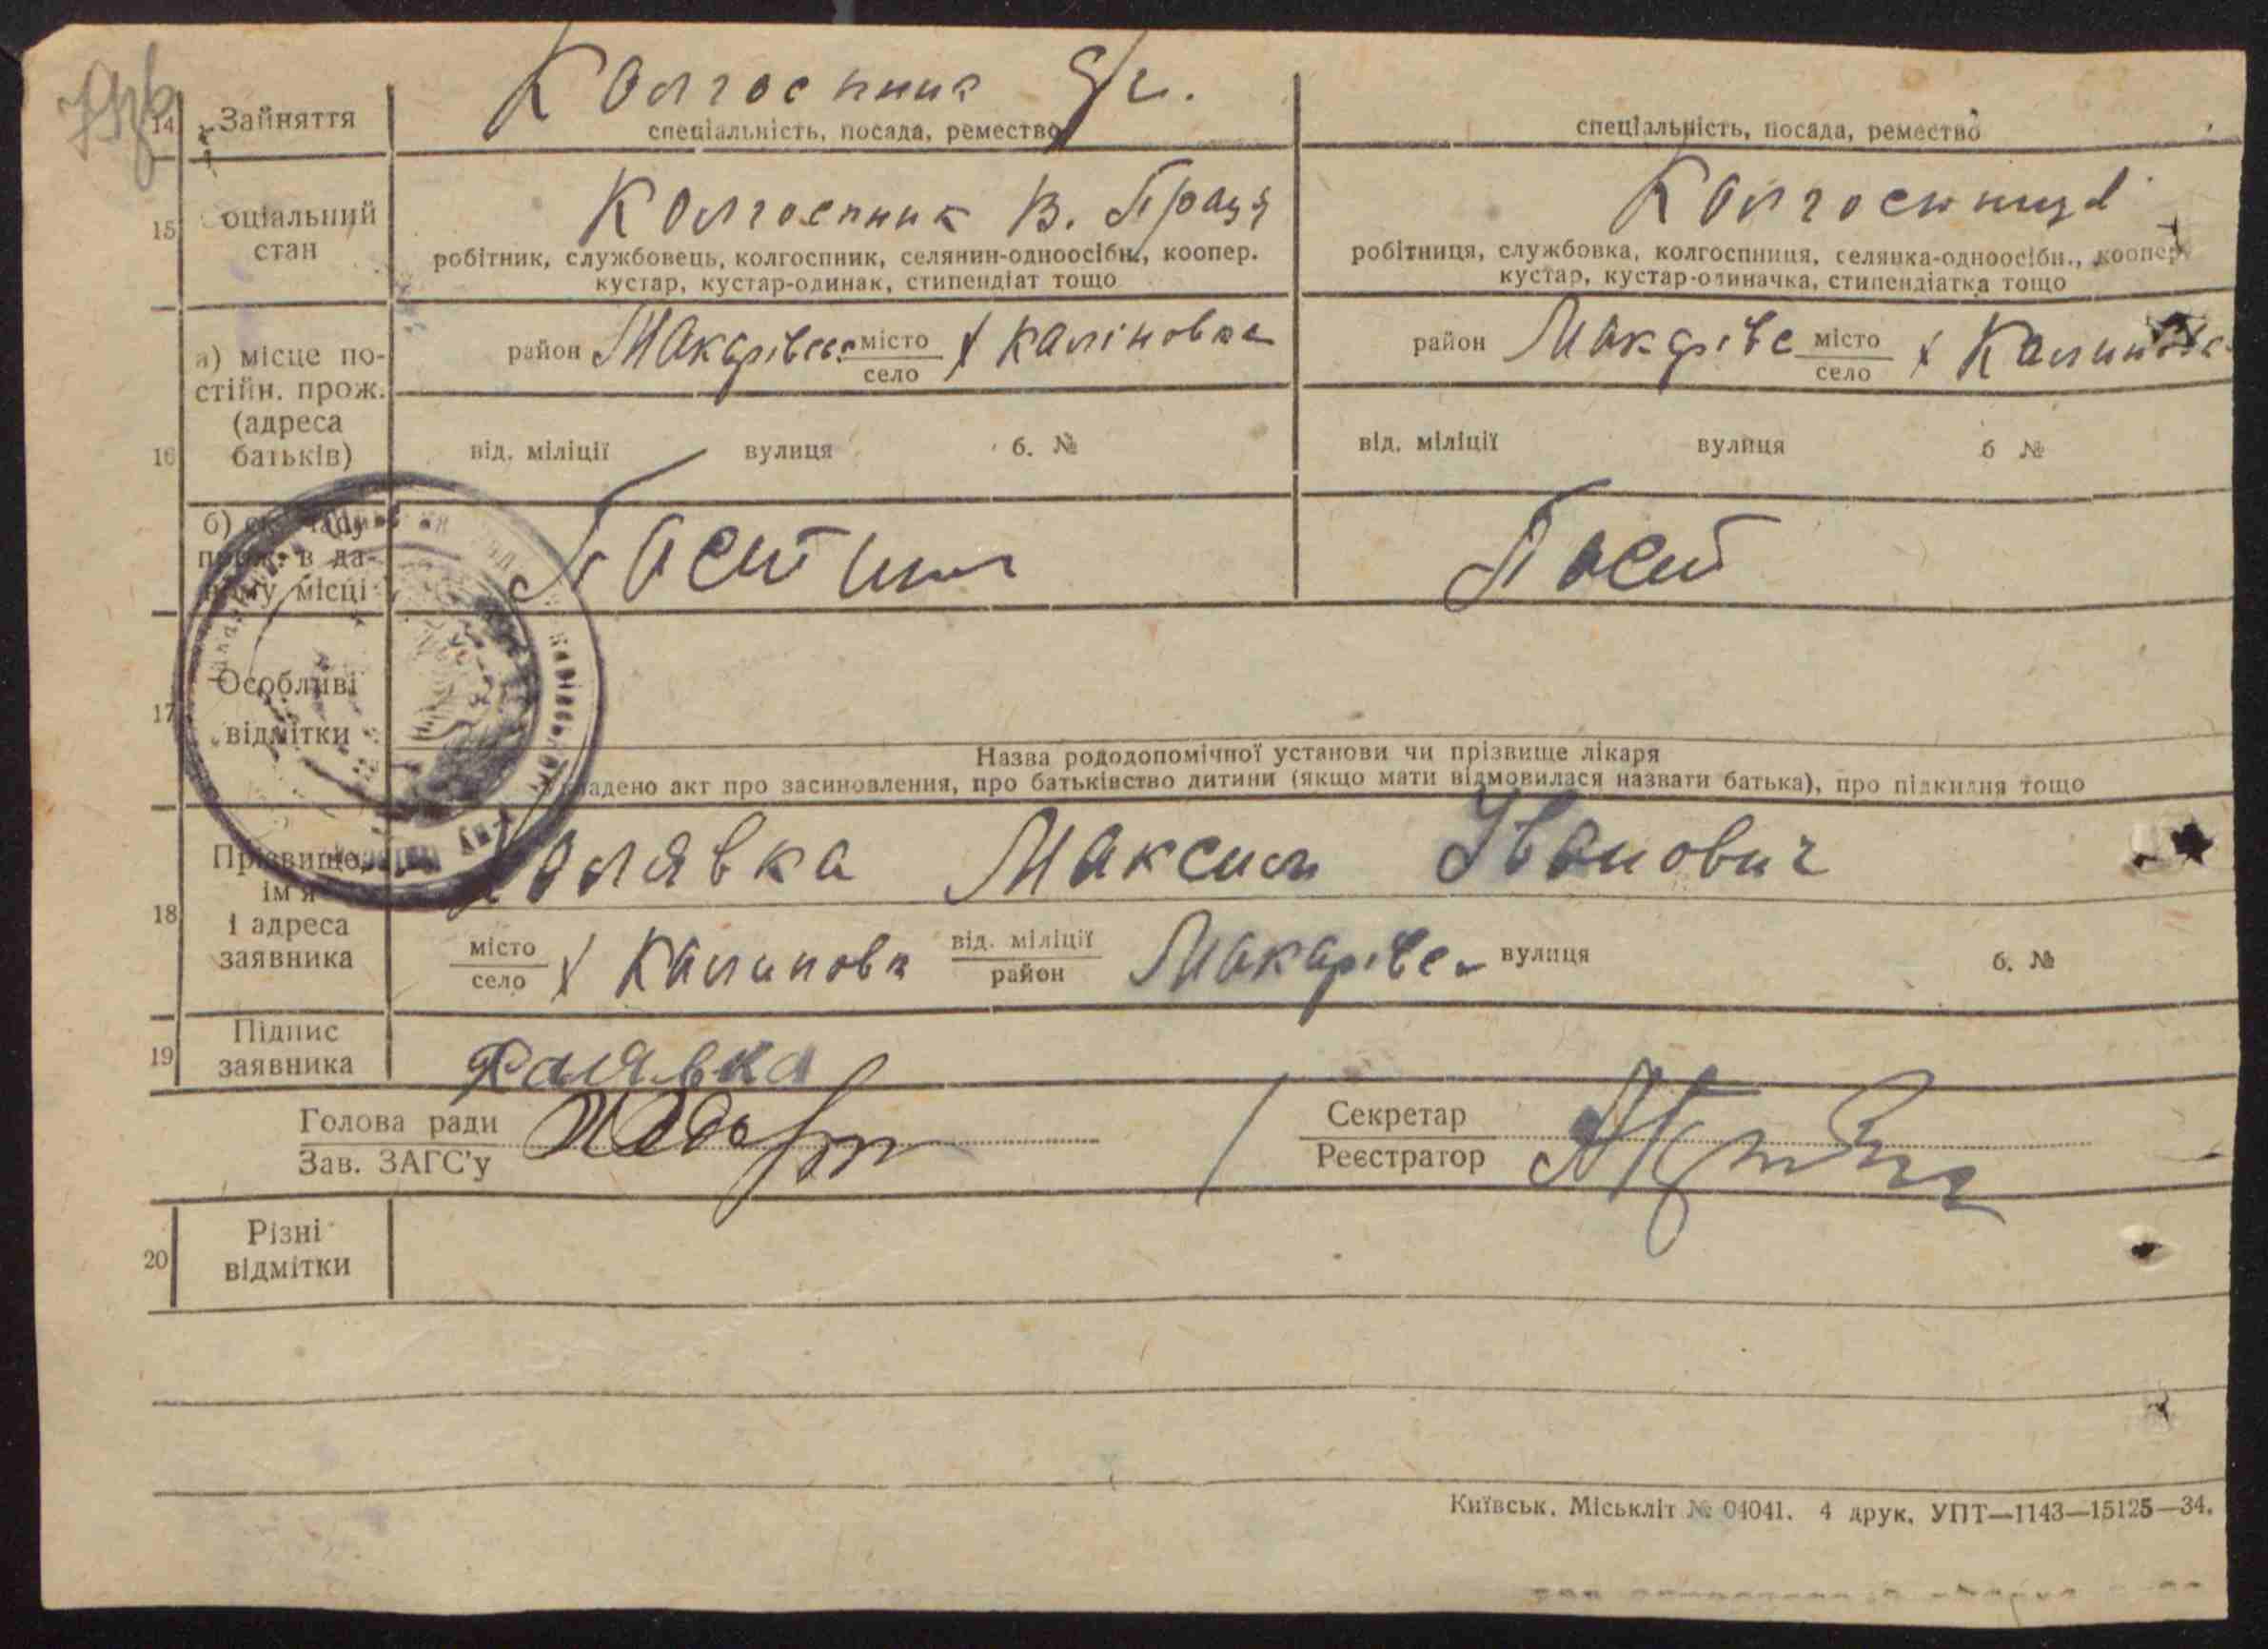 14 Зайняття Колгоспник
спеціальність, посада, ремество спеціальність, посада, ремество
15 Соціальний стан Колгоспник В. Праця Колгоспниця
робітник, службовець, колгоспник, селянин-одноосібн., коопер. робітниця, службовка, колгоспниця, селянка-одноосібн., коопер.
кустар, кустар-одинак, стипендіат тощо кустар, кустар-одиначка, стипендіатка тощо
а) місце по- район Макарівськ місто х Каліновка район Макарівс місто х Калиновка
стійн. прож. село село
(адреса
16 батьків) від. міліції вулиця б. № від. міліції вулиця б №
б)
прож. в да- Постійн Пост
ному місці
17 Особливі
відмітки
Назва рододопомічної установи чи прізвище лікаря
адено акт про засиновлення, про батьківство дитини (якщо мати відмовилася назвати батька), про підкидня тощо
Прізвище, Холявка Максим Іванович
ім'я
18 і адреса місто х Калиновк від. міліції Макарівсь вулиця б. №
заявника село район
19 Підпис
заявника Холявка
Голова ради Секретар
Зав. ЗАГС'у Реєстратор
20 Різні
відмітки
Київськ. Міськліт № 04041. 4 друк. УПТ—1143—15125—34.